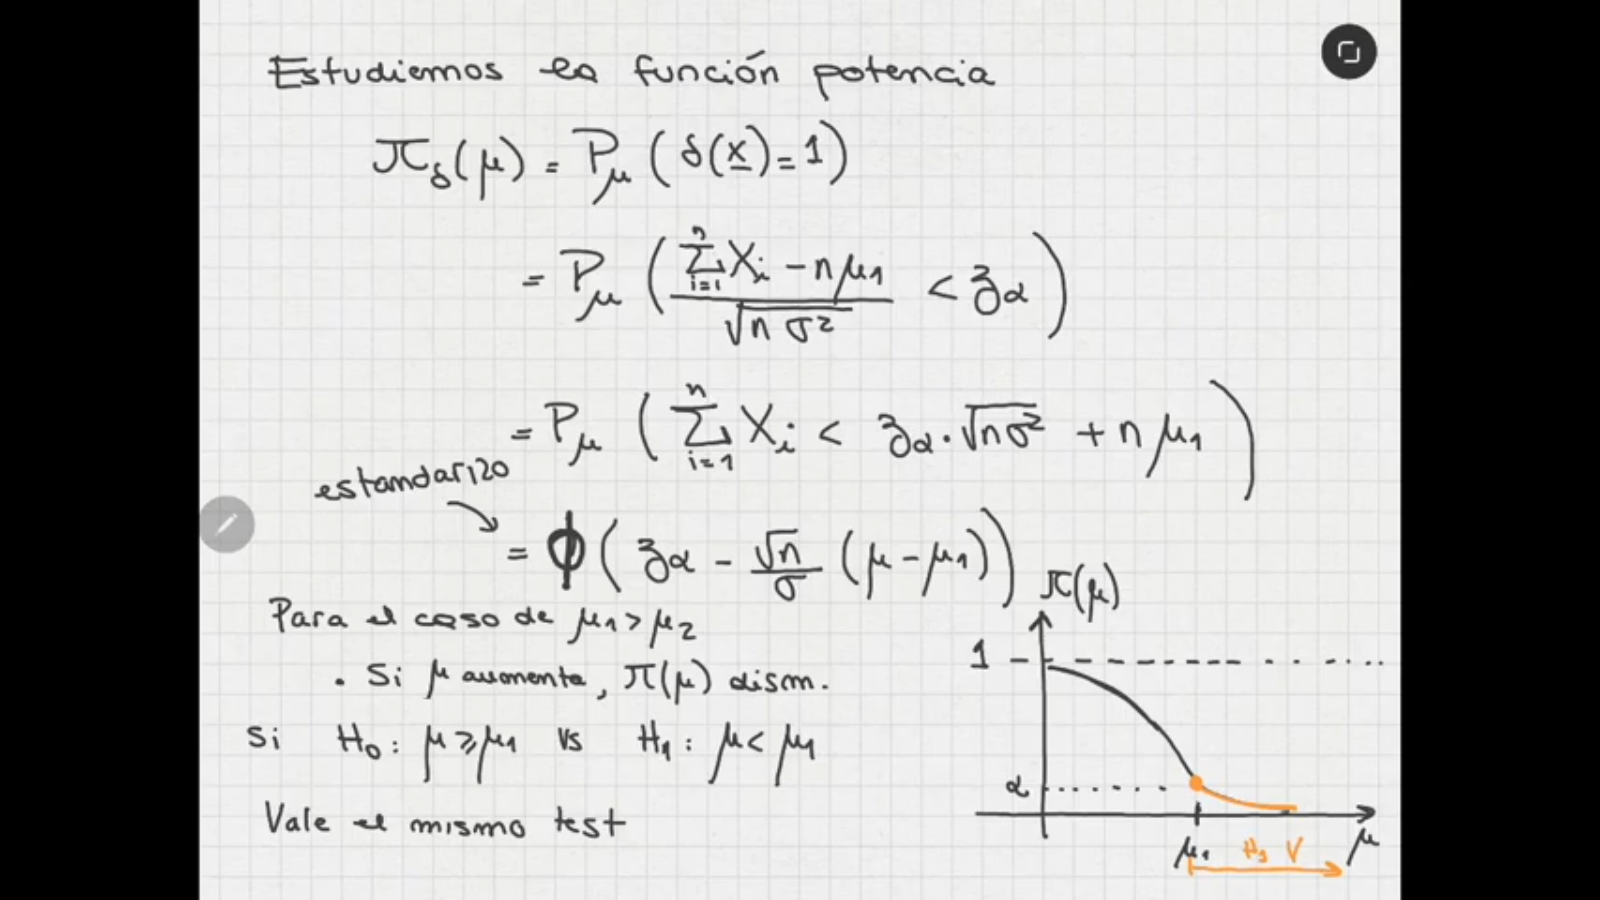 Estudiemos la función potencia
π_δ(μ) = P_μ ( δ(x) = 1 )
= P_μ ( (∑_{i=1}^{n} X_i - nμ_1) / √(n σ²) < z_α )
= P_μ ( ∑_{i=1}^{n} X_i < z_α · √(nσ²) + n μ_1 )
estandarizo
= ϕ ( z_α - (√n / σ) (μ - μ_1) )
π(μ)
Para el caso de μ_1 > μ_2
1
. Si μ aumenta, π(μ) dism.
Si H_0 : μ ⩾ μ_1 vs H_1 : μ < μ_1
α
Vale el mismo test
μ_1
μ
V